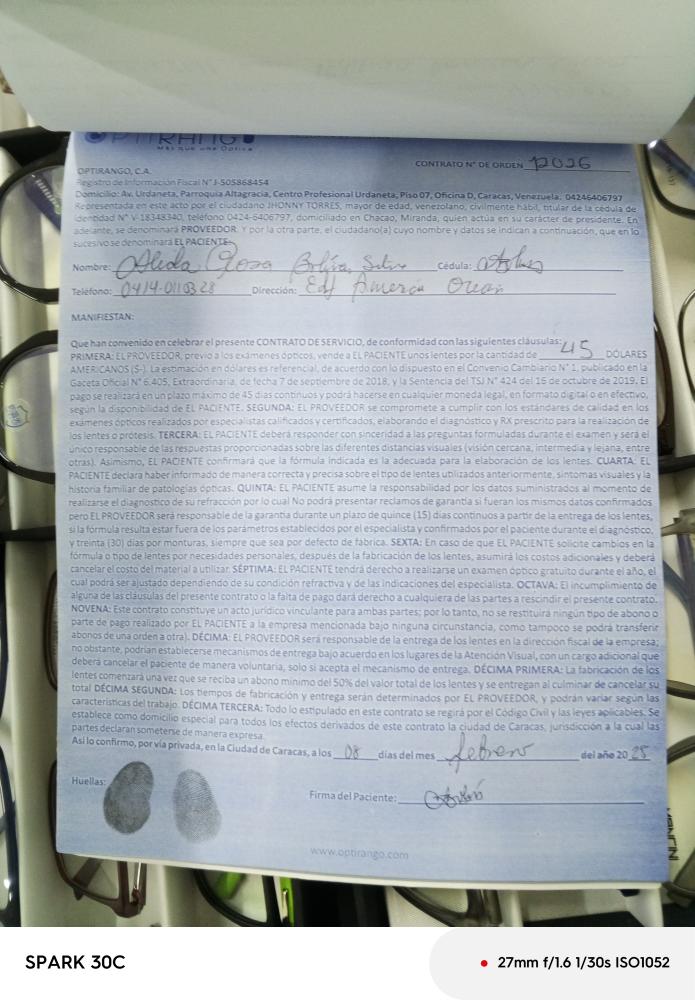 OPTIRANGO
Más que una Óptica
CONTRATO N° DE ORDEN 12026
OPTIRANGO, C.A.
Registro de Información Fiscal N° J-505868454
Domicilio: Av. Urdaneta, Parroquia Altagracia, Centro Profesional Urdaneta, Piso 07, Oficina D, Caracas, Venezuela. 04246406797
Representada en este acto por el ciudadano JHONNY TORRES, mayor de edad, venezolano, civilmente hábil, titular de la cédula de
identidad N° V-18348340, teléfono 0424-6406797, domiciliado en Chacao, Miranda, quien actúa en su carácter de presidente. En
adelante, se denominará PROVEEDOR. Y por la otra parte, el ciudadano(a) cuyo nombre y datos se indican a continuación, que en lo
sucesivo se denominará EL PACIENTE:
Nombre: Bolívar Cédula:
Teléfono: 0414-0110328 Dirección: Edf America
MANIFIESTAN:
Que han convenido en celebrar el presente CONTRATO DE SERVICIO, de conformidad con las siguientes cláusulas:
PRIMERA: EL PROVEEDOR, previo a los exámenes ópticos, vende a EL PACIENTE unos lentes por la cantidad de 45 DÓLARES
AMERICANOS ($-). La estimación en dólares es referencial, de acuerdo con lo dispuesto en el Convenio Cambiario N° 1, publicado en la
Gaceta Oficial N° 6.405, Extraordinaria, de fecha 7 de septiembre de 2018, y la Sentencia del TSJ N° 424 del 16 de octubre de 2019. El
pago se realizará en un plazo máximo de 45 días continuos y podrá hacerse en cualquier moneda legal, en formato digital o en efectivo,
según la disponibilidad de EL PACIENTE. SEGUNDA: EL PROVEEDOR se compromete a cumplir con los estándares de calidad en los
exámenes ópticos realizados por especialistas calificados y certificados, elaborando el diagnóstico y RX prescrito para la realización de
los lentes o prótesis. TERCERA: EL PACIENTE deberá responder con sinceridad a las preguntas formuladas durante el examen y será el
único responsable de las respuestas proporcionadas sobre las diferentes distancias visuales (visión cercana, intermedia y lejana, entre
otras). Asimismo, EL PACIENTE confirmará que la fórmula indicada es la adecuada para la elaboración de los lentes. CUARTA: EL
PACIENTE declara haber informado de manera correcta y precisa sobre el tipo de lentes utilizados anteriormente, síntomas visuales y la
historia familiar de patologías ópticas. QUINTA: EL PACIENTE asume la responsabilidad por los datos suministrados al momento de
realizarse el diagnóstico de su refracción por lo cual No podrá presentar reclamos de garantía si fueran los mismos datos confirmados
pero EL PROVEEDOR será responsable de la garantía durante un plazo de quince (15) días continuos a partir de la entrega de los lentes,
si la fórmula resulta estar fuera de los parámetros establecidos por el especialista y confirmados por el paciente durante el diagnóstico,
y treinta (30) días por monturas, siempre que sea por defecto de fabrica. SEXTA: En caso de que EL PACIENTE solicite cambios en la
fórmula o tipo de lentes por necesidades personales, después de la fabricación de los lentes, asumirá los costos adicionales y deberá
cancelar el costo del material a utilizar. SÉPTIMA: EL PACIENTE tendrá derecho a realizarse un examen óptico gratuito durante el año, el
cual podrá ser ajustado dependiendo de su condición refractiva y de las indicaciones del especialista. OCTAVA: El incumplimiento de
alguna de las cláusulas del presente contrato o la falta de pago dará derecho a cualquiera de las partes a rescindir el presente contrato.
NOVENA: Este contrato constituye un acto jurídico vinculante para ambas partes; por lo tanto, no se restituirá ningún tipo de abono o
parte de pago realizado por EL PACIENTE a la empresa mencionada bajo ninguna circunstancia, como tampoco se podrá transferir
abonos de una orden a otra). DÉCIMA: EL PROVEEDOR será responsable de la entrega de los lentes en la dirección fiscal de la empresa;
no obstante, podrían establecerse mecanismos de entrega bajo acuerdo en los lugares de la Atención Visual, con un cargo adicional que
deberá cancelar el paciente de manera voluntaria, solo si acepta el mecanismo de entrega. DÉCIMA PRIMERA: La fabricación de los
lentes comenzará una vez que se reciba un abono mínimo del 50% del valor total de los lentes y se entregan al culminar de cancelar su
total DÉCIMA SEGUNDA: Los tiempos de fabricación y entrega serán determinados por EL PROVEEDOR, y podrán variar según las
características del trabajo. DÉCIMA TERCERA: Todo lo estipulado en este contrato se regirá por el Código Civil y las leyes aplicables. Se
establece como domicilio especial para todos los efectos derivados de este contrato la ciudad de Caracas, jurisdicción a la cual las
partes declaran someterse de manera expresa.
Así lo confirmo, por vía privada, en la Ciudad de Caracas, a los 08 días del mes febrero del año 2025
Huellas:
Firma del Paciente:
www.optirango.com
SPARK 30C
27mm f/1.6 1/30s ISO1052